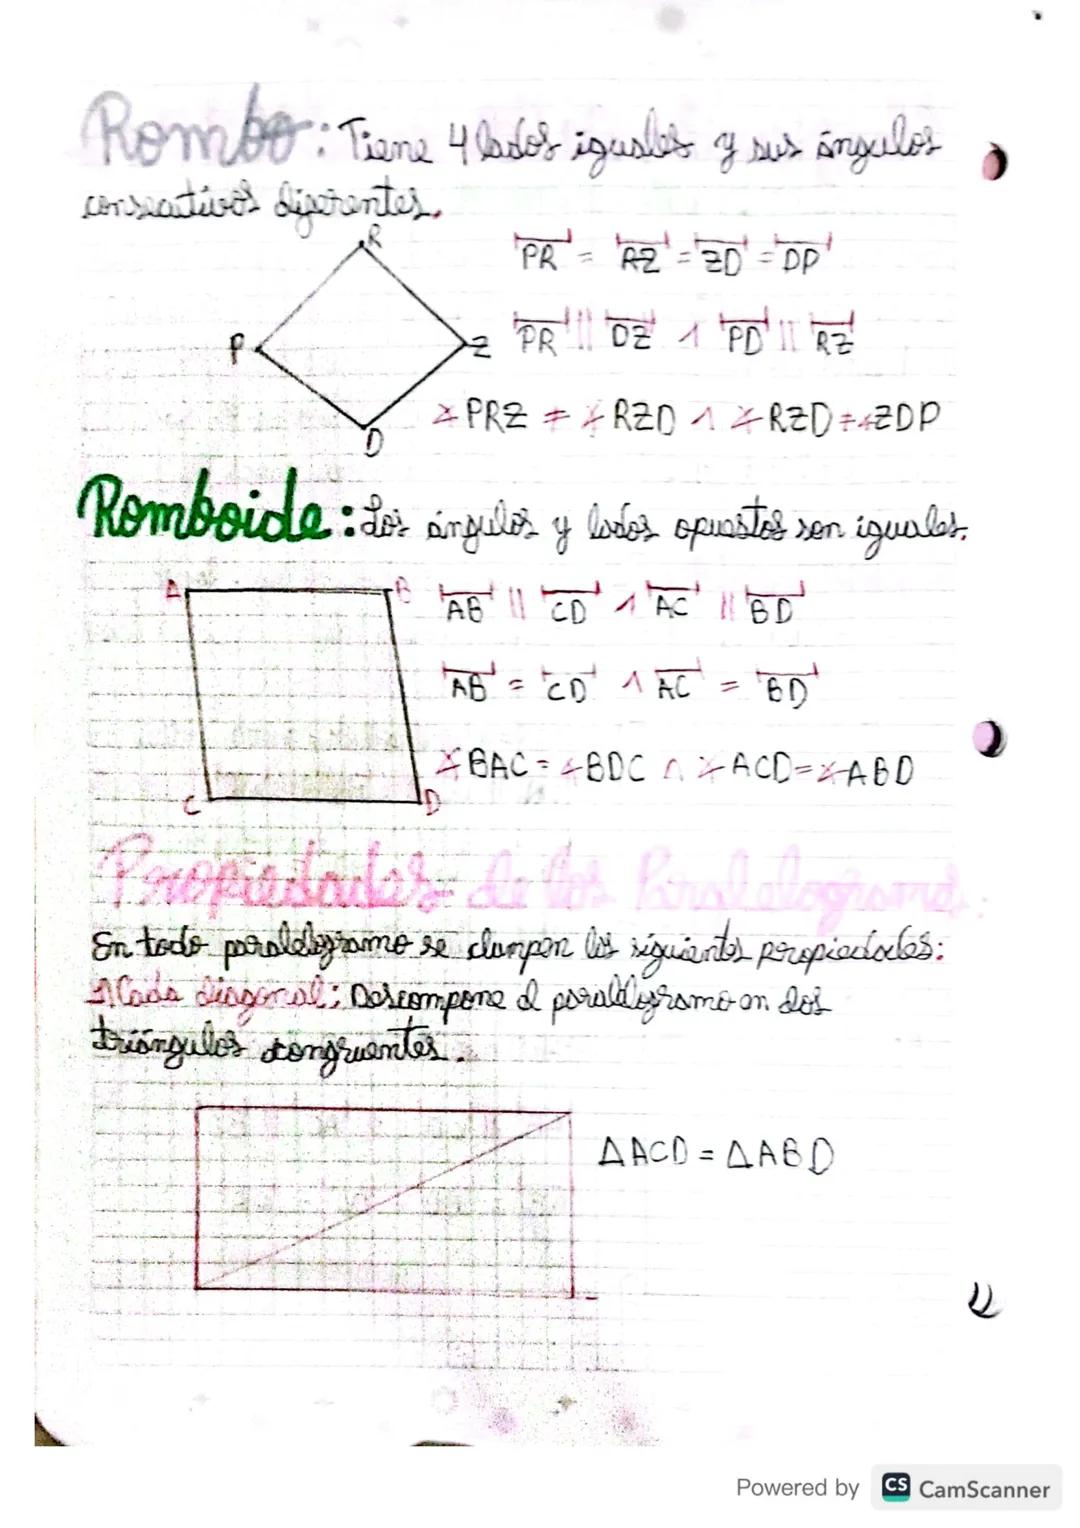 Rombo: Tiene 4 lados iguales y sus ángulos
consecutivos diferentes.
R
P
Z
D
PR = RZ = ZD = DP
PR || DZ ∧ PD || RZ
∡PRZ ≠ ∡RZD ∧ ∡RZD ≠ ∡ZDP
Romboide: Los ángulos y lados opuestos son iguales.
A
B
C
D
AB || CD ∧ AC || BD
AB = CD ∧ AC = BD
∡BAC = ∡BDC ∧ ∡ACD = ∡ABD
Propiedades de los Paralelogramos:
En todo paralelogramo se clumpen las siguientes propiedades:
1) Cada diagonal: Descompone el paralelogramo en dos
triángulos congruentes.
ΔACD = ΔABD
Powered by CS CamScanner